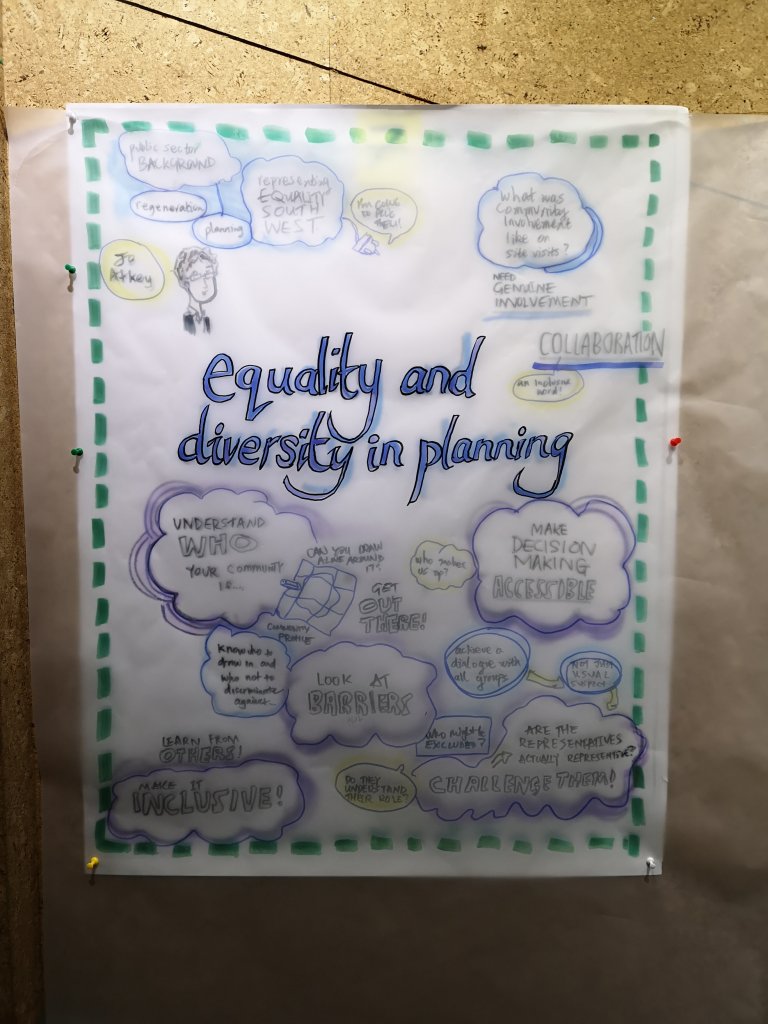 public sector
BACKGROUND
regeneration
planning
representing
EQUALITY
SOUTH
WEST
I'm going
to plug
them!
Jo
Atkey
what was
community
involvement
like on
site visits?
NEED
GENUINE
INVOLVEMENT
COLLABORATION
an inclusive
word!
equality and
diversity in planning
UNDERSTAND
WHO
YOUR COMMUNITY
IS...
CAN YOU DRAW
A LINE AROUND
IT?
COMMUNITY
PROFILE
GET
OUT
THERE!
who makes
us up?
MAKE
DECISION
MAKING
ACCESSIBLE
know who to
draw in and
who not to
discriminate
against...
LOOK AT
BARRIERS
achieve a
dialogue with
all groups
NOT JUST
USUAL
SUSPECTS
who might be
EXCLUDED?
ARE THE
REPRESENTATIVES
ACTUALLY REPRESENTIVE?
CHALLENGE THEM!
DO THEY
UNDERSTAND
THEIR ROLE?
LEARN FROM
OTHERS!
MAKE IT
INCLUSIVE!